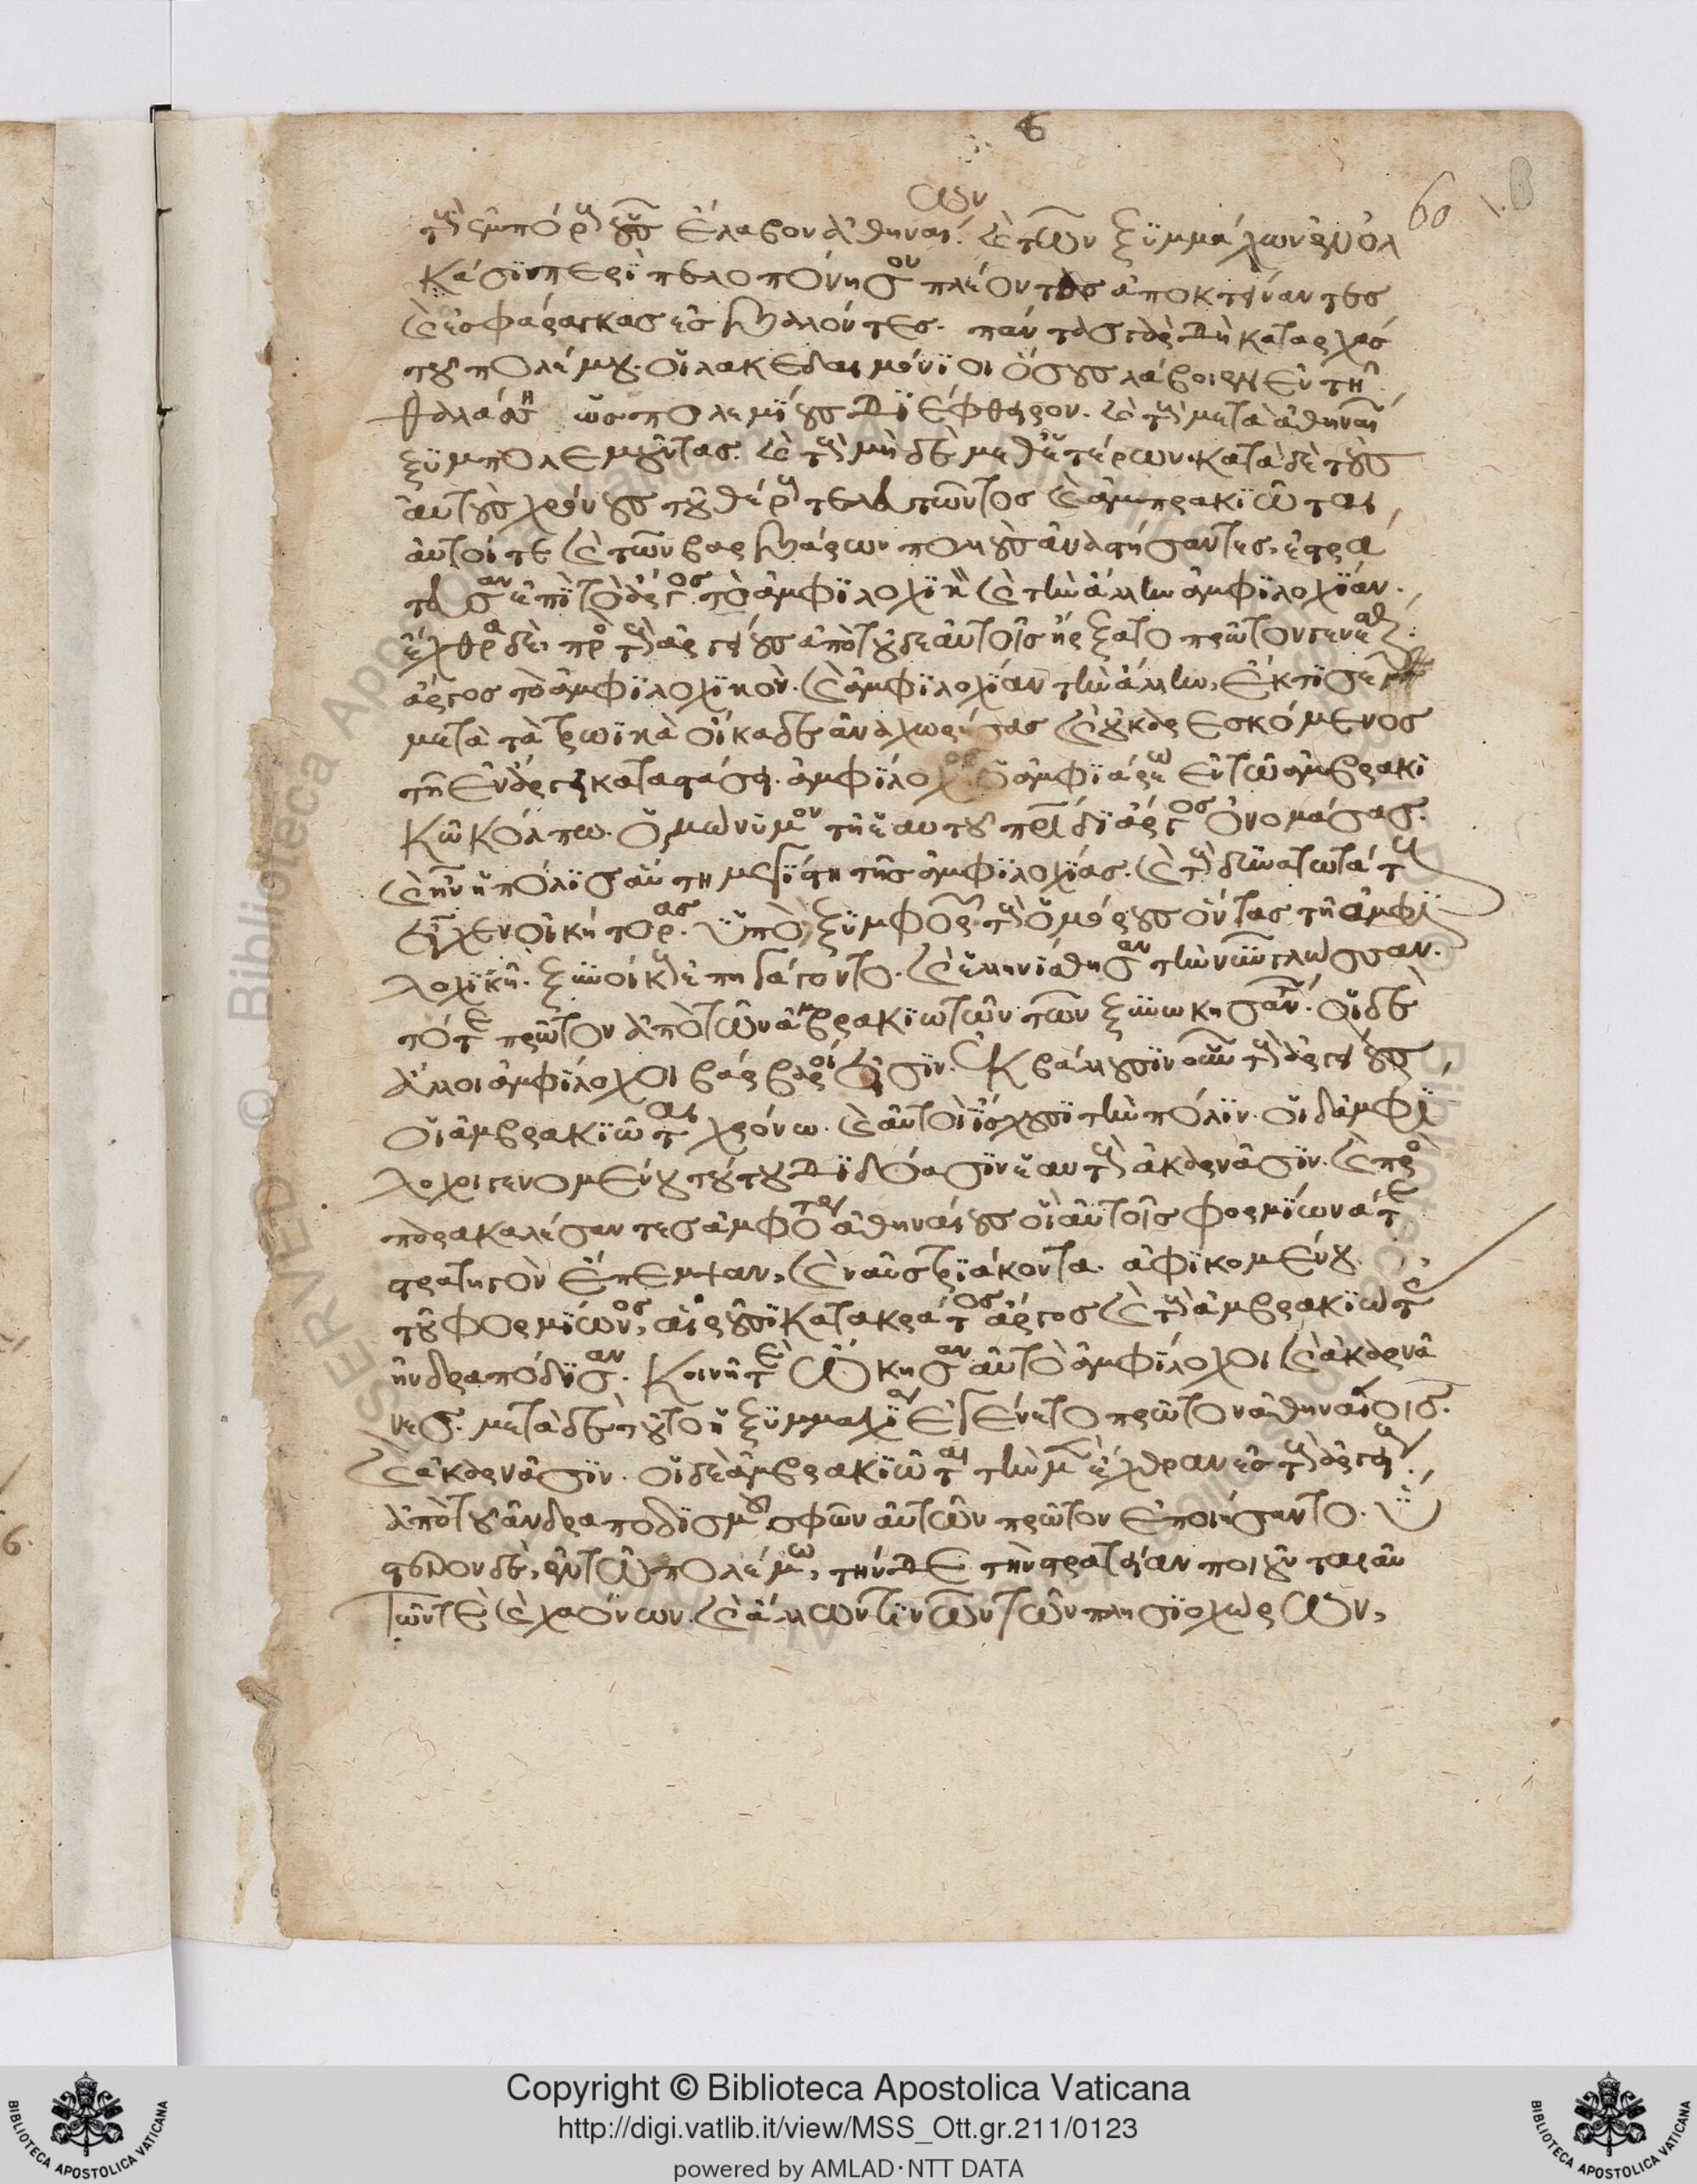 6
60
τοὺς ἐμπόρους οὓς ἔλαβον ἀθηναίων καὶ τῶν ξυμμάχων ἐν ὁλ
κάσι περὶ πελοπόννησον πλέοντας ἀποκτείναντες
καὶ ἐς φάραγκας ἐσβαλόντες. πάντας γὰρ δὴ κατ' ἀρχὰς
τοῦ πολέμου οἱ λακεδαιμόνιοι ὅσους λάβοιεν ἐν τῇ
θαλάσσῃ ὡς πολεμίους διέφθειρον. καὶ τοὺς μετὰ ἀθηναίων
ξυμπολεμοῦντας καὶ τοὺς μηδὲ μεθ' ἑτέρων. κατὰ δὲ τοὺς
αὐτοὺς χρόνους τοῦ θέρους τελευτῶντος καὶ ἀμπρακιῶται
αὐτοί τε καὶ τῶν βαρβάρων πολλοὺς ἀναστήσαντες, ἐστρά
τευσαν ἐπὶ τὸ ἄργος τὸ ἀμφιλοχικὸν καὶ τὴν ἄλλην ἀμφιλοχίαν.
ἔχθρα δὲ πρὸς τοὺς ἀργείους ἀπὸ τοῦδε αὐτοῖς ἤρξατο πρῶτον γενέσθαι.
ἄργος τὸ ἀμφιλοχικὸν. καὶ ἀμφιλοχίαν τὴν ἄλλην, ἔκτισε
μετὰ τὰ τρωικὰ οἴκαδε ἀναχωρήσας καὶ οὐκ ἀρεσκόμενος
τῇ ἐν ἄργει καταστάσει. ἀμφίλοχος ὁ ἀμφιάρεω ἐν τῷ ἀμβρακι
κῷ κόλπῳ. ὁμώνυμον τῇ ἑαυτοῦ πατρίδι ἄργος ὀνομάσας.
καὶ ἦν ἡ πόλις αὕτη μεγίστη τῆς ἀμφιλοχίας. καὶ τοὺς δυνατωτάτους
εἶχεν οἰκήτορας. ὑπὸ ξυμφορῶν τοὺς ὁμόρους ὄντας τῇ ἀμφι
λοχικῇ. ξυνοίκους ἐπηγάγοντο. καὶ ἑλληνίσθησαν τὴν νῦν γλῶσσαν.
τότε πρῶτον ἀπὸ τῶν ἀμβρακιωτῶν τῶν ξυνοικησάντων. οἱ δὲ
ἄλλοι ἀμφίλοχοι βάρβαροί εἰσιν. ἐκβάλλουσιν οὖν τοὺς ἀργείους
οἱ ἀμβρακιῶται χρόνῳ. καὶ αὐτοὶ ἴσχουσι τὴν πόλιν. οἱ δ' ἀμφί
λοχοι γενομένου τούτου διδόασιν ἑαυτοὺς ἀκαρνᾶσιν. καὶ προσ
παρακαλέσαντες ἀμφότεροι ἀθηναίους οἳ αὐτοῖς φορμίωνά τε
στρατηγὸν ἔπεμψαν, καὶ ναῦς τριάκοντα. ἀφικομένου
τοῦ φορμίωνος, αἱροῦσι κατακράτος ἄργος καὶ τοὺς ἀμβρακιώτας
ἠνδραπόδισαν. κοινῇ τε ᾤκησαν αὐτὸ ἀμφίλοχοι καὶ ἀκαρνᾶ
νες. μετὰ δὲ τοῦτο ἡ ξυμμαχία ἐγένετο πρῶτον ἀθηναίοις.
καὶ ἀκαρνᾶσιν. οἱ δὲ ἀμβρακιῶται τὴν μὲν ἔχθραν ἐς τοὺς ἀργείους
ἀπὸ τοῦ ἀνδραποδισμοῦ σφῶν αὐτῶν πρῶτον ἐποιήσαντο. ὕ
στερον δὲ, ἐν τῷ πολέμῳ, τήνδε τὴν στρατείαν ποιοῦνται ἑαυ
τῶν τε καὶ χαόνων. καὶ ἄλλων τινῶν τῶν πλησιοχώρων,
6.
© Biblioteca Apostolica Vaticana
Copyright © Biblioteca Apostolica Vaticana
http://digi.vatlib.it/view/MSS_Ott.gr.211/0123
powered by AMLAD·NTT DATA
BIBLIOTECA APOSTOLICA VATICANA
BIBLIOTECA APOSTOLICA VATICANA